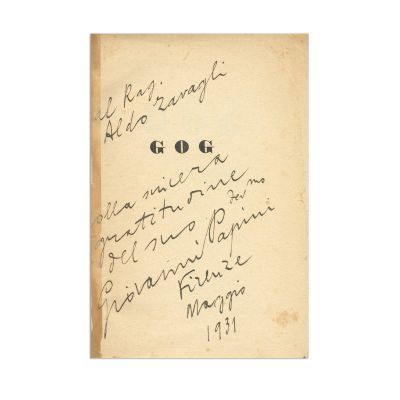 al Rag.
Aldo Zavagli
GOG
colla sincera
gratitudine
del suo dev.mo
Giovanni Papini
Firenze
Maggio
1931